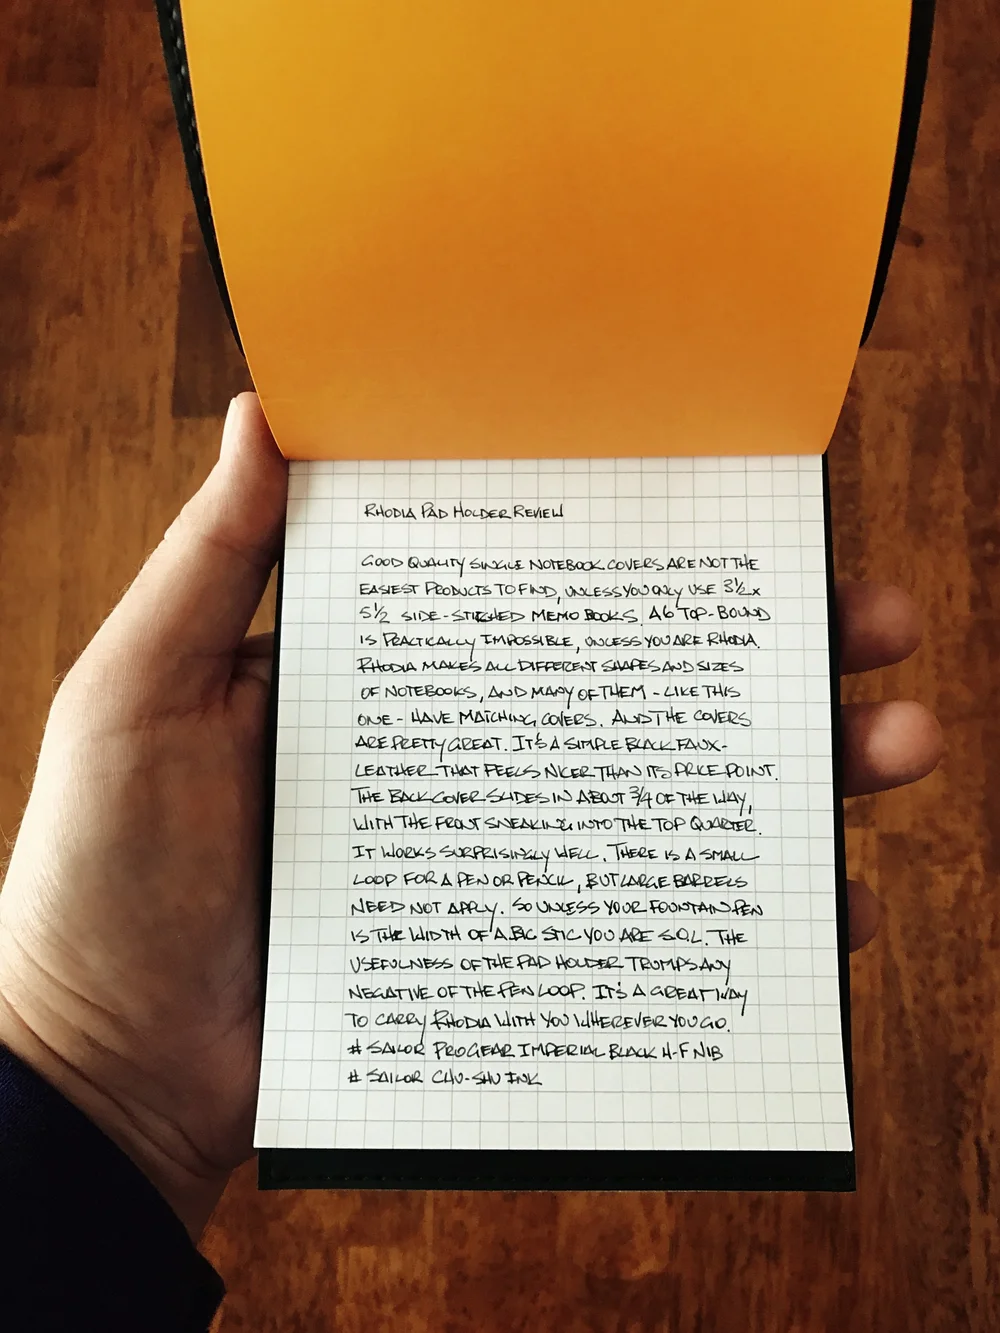 RHODIA PAD HOLDER REVIEW
GOOD QUALITY SINGLE NOTEBOOK COVERS ARE NOT THE
EASIEST PRODUCTS TO FIND, UNLESS YOU ONLY USE 3½ x
5½ SIDE-STITCHED MEMO BOOKS. A6 TOP-BOUND
IS PRACTICALLY IMPOSSIBLE, UNLESS YOU ARE RHODIA.
RHODIA MAKES ALL DIFFERENT SHAPES AND SIZES
OF NOTEBOOKS, AND MANY OF THEM - LIKE THIS
ONE - HAVE MATCHING COVERS. AND THE COVERS
ARE PRETTY GREAT. IT'S A SIMPLE BLACK FAUX-
LEATHER THAT FEELS NICER THAN ITS PRICE POINT.
THE BACK COVER SLIDES IN ABOUT ¾ OF THE WAY,
WITH THE FRONT SNEAKING INTO THE TOP QUARTER.
IT WORKS SURPRISINGLY WELL. THERE IS A SMALL
LOOP FOR A PEN OR PENCIL, BUT LARGE BARRELS
NEED NOT APPLY. SO UNLESS YOUR FOUNTAIN PEN
IS THE WIDTH OF A BIC STIC YOU ARE S.O.L. THE
USEFULNESS OF THE PAD HOLDER TRUMPS ANY
NEGATIVE OF THE PEN LOOP. IT'S A GREAT WAY
TO CARRY RHODIA WITH YOU WHEREVER YOU GO.
# SAILOR PRO GEAR IMPERIAL BLACK H-F NIB
# SAILOR CHU-SHU INK